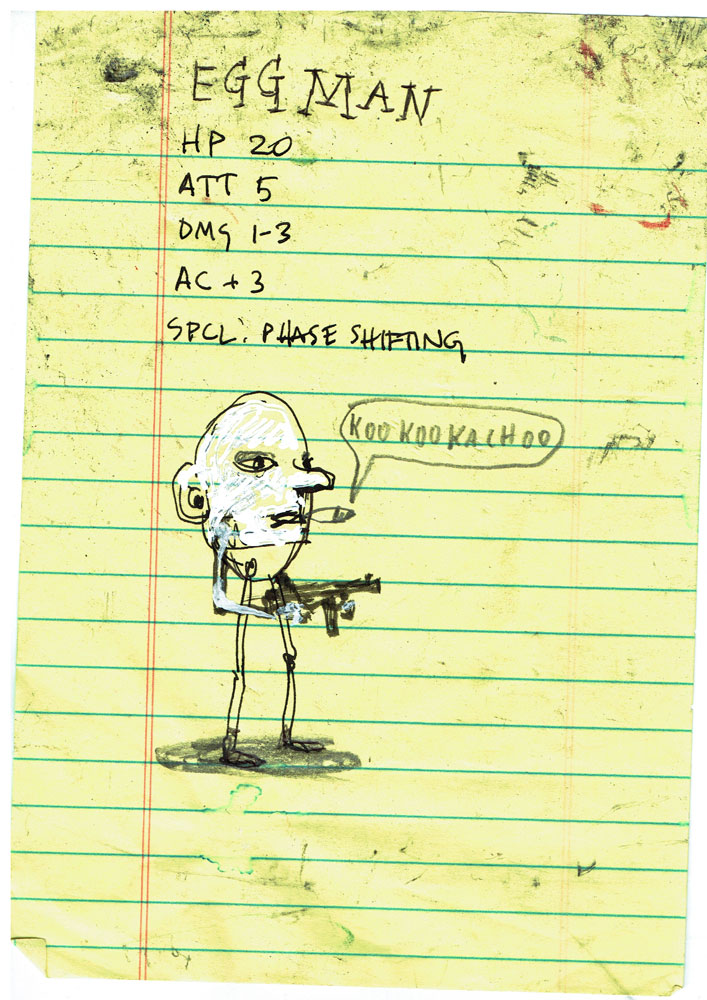 EGG MAN
HP 20
ATT 5
DMG 1-3
AC + 3
SPCL: PHASE SHIFTING
KOO KOO KACHOO